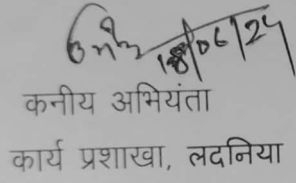 18/06/24
कनीय अभियंता
कार्य प्रशाखा, लदनिया